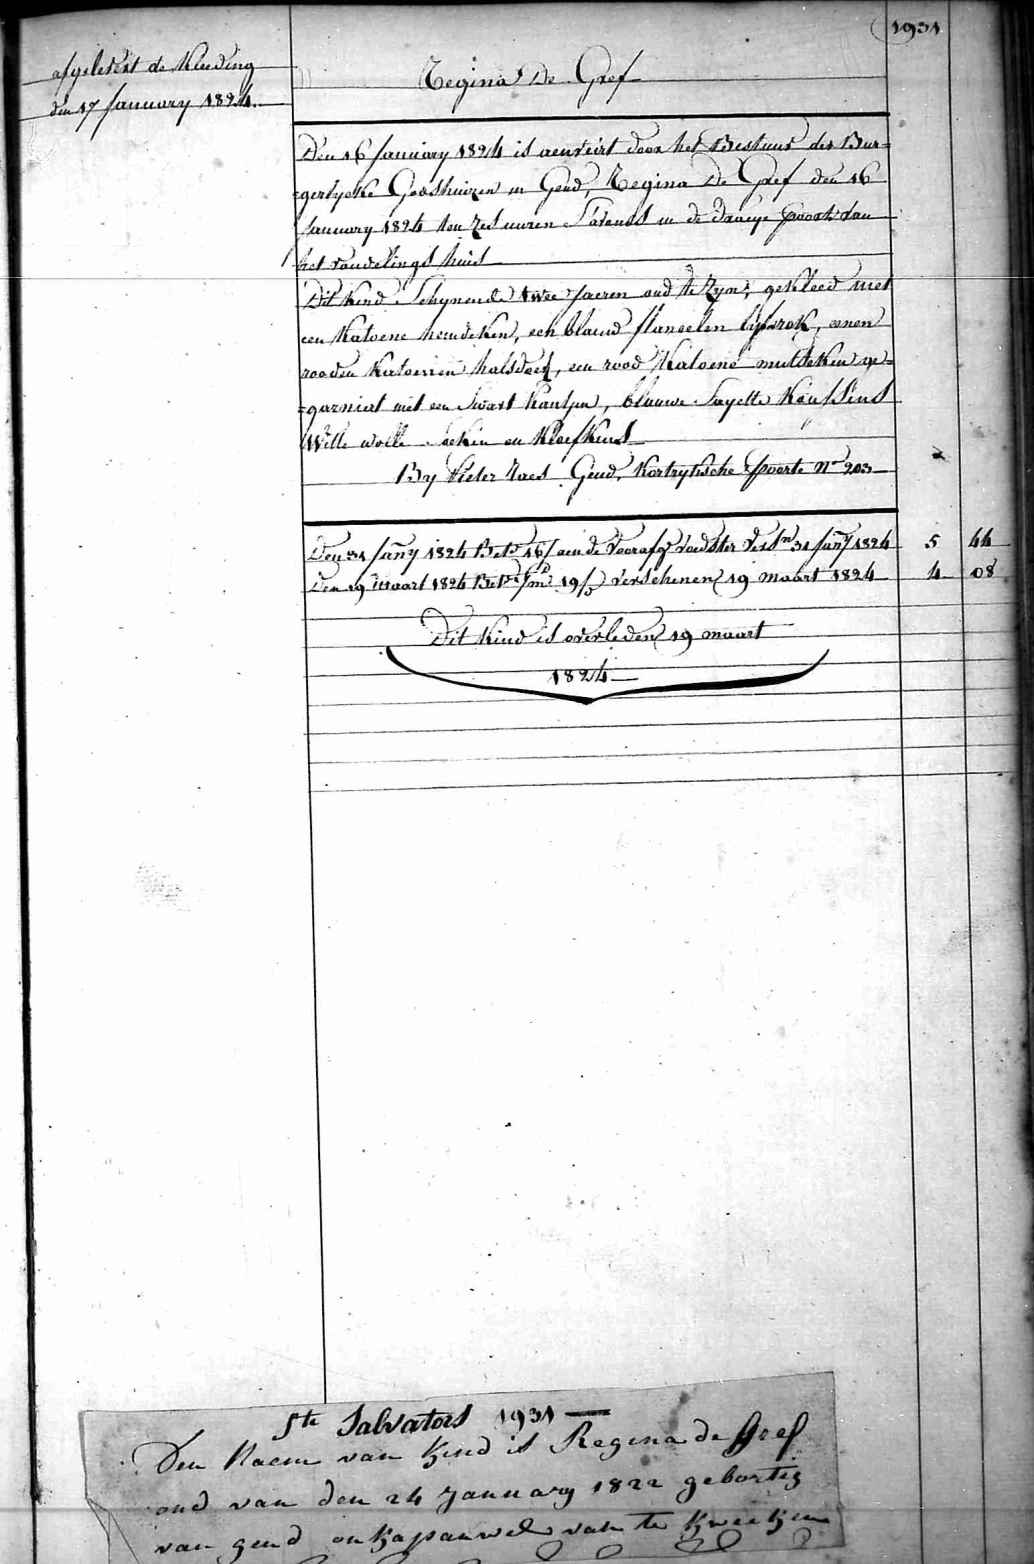 1931
afgelevert de Kleeding
den 17 January 1824.
Regina De Gref
Den 16 January 1824 is aenveirt door het Bestuur der Bur=
=gerlyeke Godshuizen in Gend, Regina De Gref den 16
January 1824 ten zes uuren S'avends in de draeye poort van
het vondelings huis
Dit kind Schynende twee jaeren oud te zyn, gekleed met
een katoene hemdeken, een blauw flanellen lyfrok, eenen
rooden katoenen halsdoek, een rood katoene mutseken ge=
=garniert met een Swart kantjen, blauwe Sayette Koussens
Witte wolle doeken en kleefkens
By Pieter Naes Gend, Kortryksche Poorte N° 203
Den 31 Jany 1824 Bet 16/ aen de voorafg voedster Versn 31 Jany 1824 5 44
Den 19 Maart 1824 Bet 19/ verschenen 19 maart 1824 4 08
Dit kind is overleden 19 maart
1824
Ste Salvators 1931
Den Naem van kind is Regina de Gref
oud van den 24 January 1822 gebortig
van gend van te kweeken